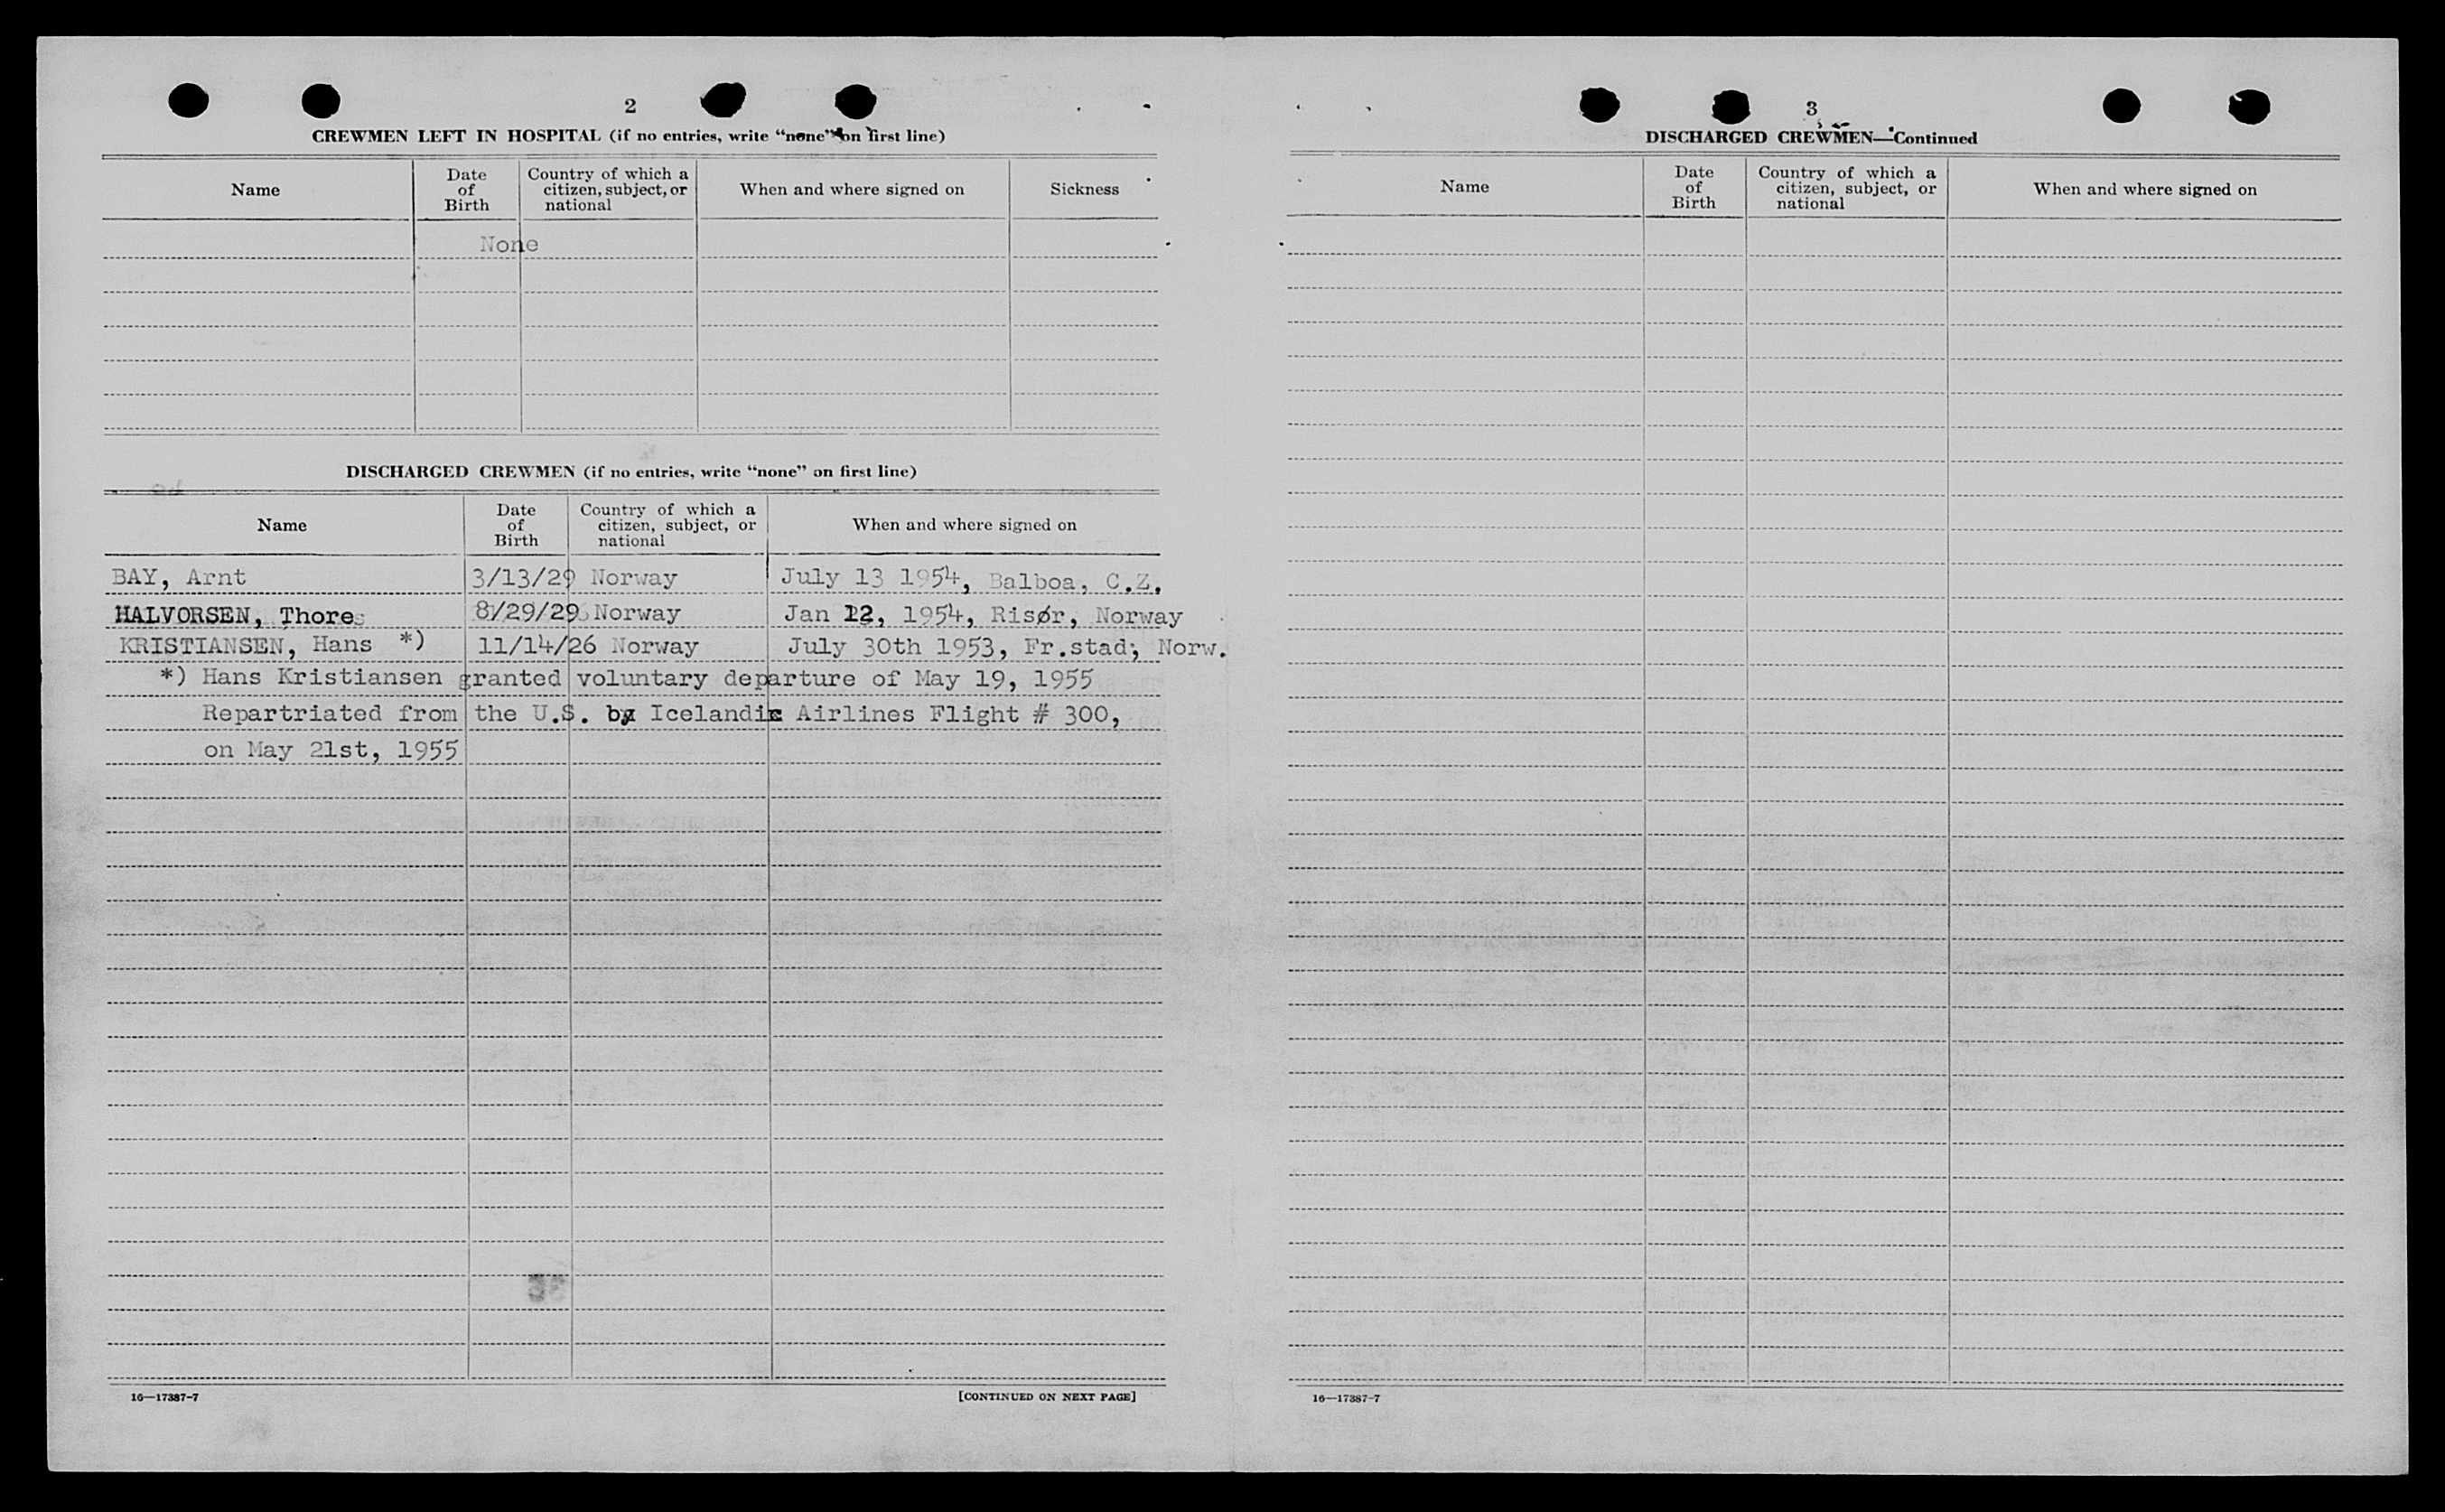 2
CREWMEN LEFT IN HOSPITAL (if no entries, write “none” on first line)
Name
Date of Birth
Country of which a citizen, subject, or national
When and where signed on
Sickness
None
DISCHARGED CREWMEN (if no entries, write “none” on first line)
Name
Date of Birth
Country of which a citizen, subject, or national
When and where signed on
BAY, Arnt 3/13/29 Norway July 13 1954, Balboa, C.Z.
HALVORSEN, Thore 8/29/29 Norway Jan 12, 1954, Risør, Norway
KRISTIANSEN, Hans *) 11/14/26 Norway July 30th 1953, Fr.stad, Norw.
*) Hans Kristiansen granted voluntary departure of May 19, 1955
Repartriated from the U.S. by Icelandic Airlines Flight # 300,
on May 21st, 1955
16—17387-7
[CONTINUED ON NEXT PAGE]
3
DISCHARGED CREWMEN—Continued
Name
Date of Birth
Country of which a citizen, subject, or national
When and where signed on
16—17387-7